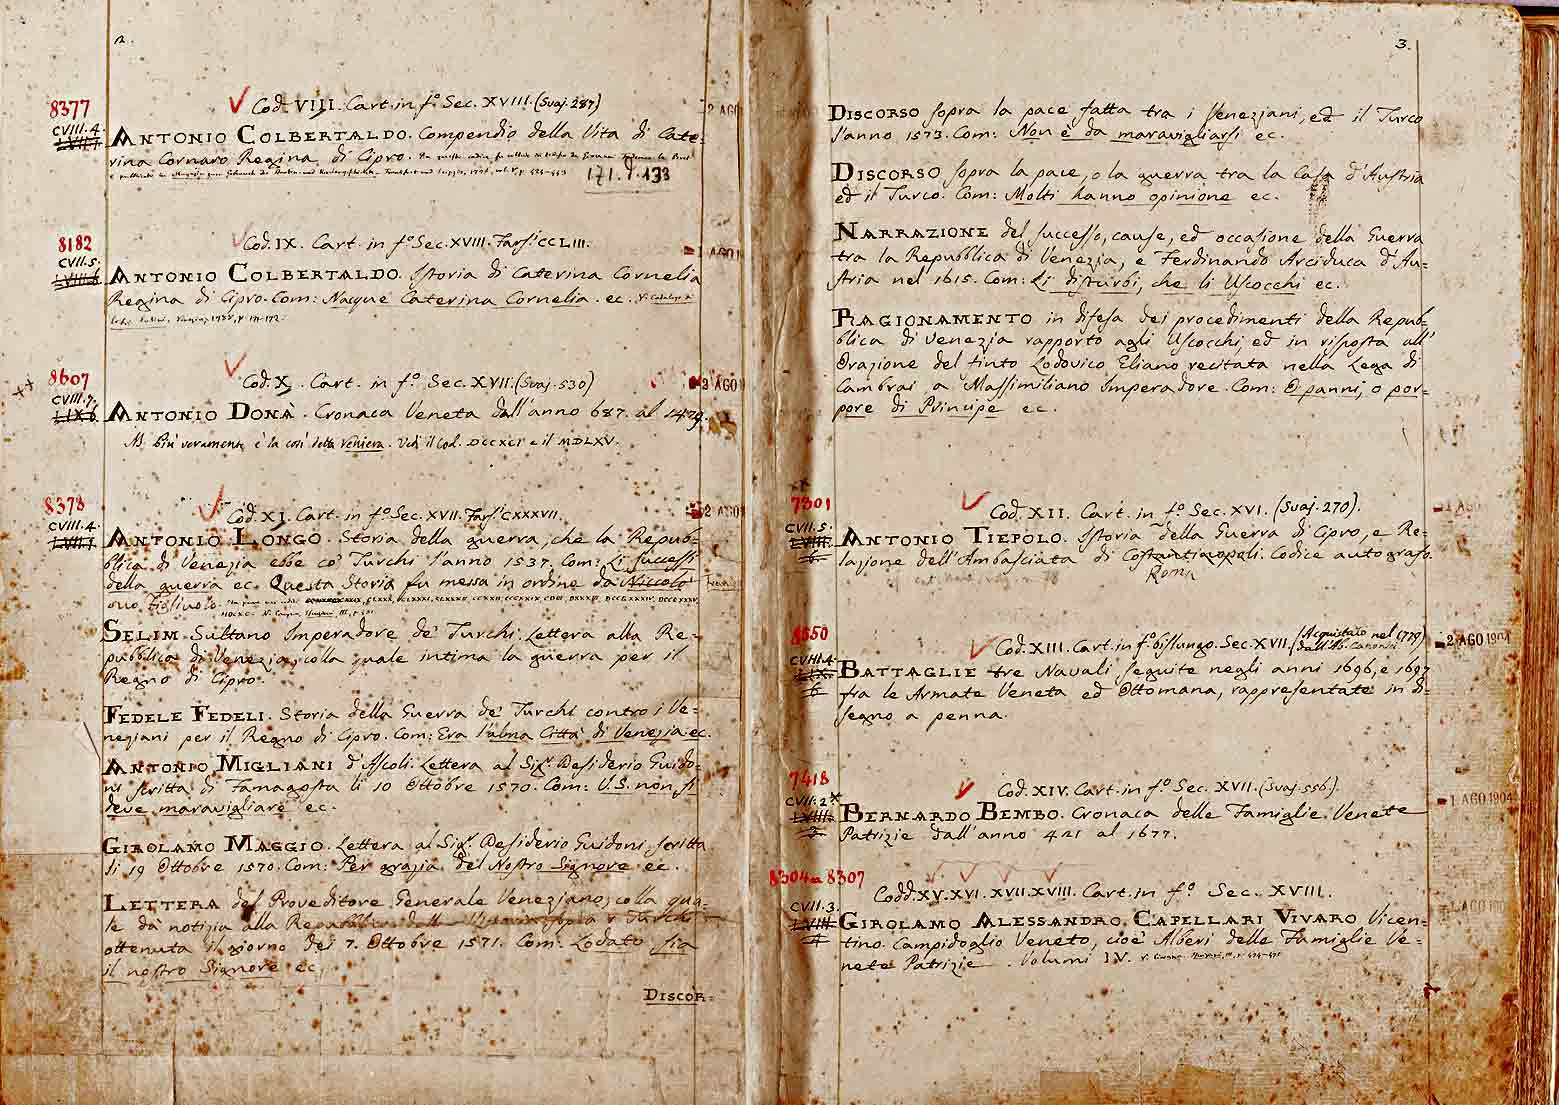 2.
8377
Cod. VIII. Cart. in f.o Sec. XVIII. (Svaj. 287)
2 AGO
CVIII.4.
ANTONIO COLBERTALDO. Compendio della Vita di Cate-
rina Cornaro Regina di Cipro.
171.J.133
8182
Cod. IX. Cart. in f.o Sec. XVIII. Fars. CCLIII.
1 AGO
CVII.5.
ANTONIO COLBERTALDO. Istoria di Caterina Cornelia
Regina di Cipro. Com: Nacque Caterina Cornelia. ec. V. Catalogo
8607
Cod. X. Cart. in f.o Sec. XVII. (Svaj. 530)
2 AGO
CVIII.7.
ANTONIO DONÀ. Cronaca Veneta dall'anno 687. al 1479.
NB. Più veramente è la così detta Veniera. Vedi il Cod. DCCXCI e il MDLXV.
8378
Cod. XI. Cart. in f.o Sec. XVII. Fars. CXXXVII.
2 AGO
CVIII.4.
ANTONIO LONGO. Storia della guerra, che la Repub-
blica di Venezia ebbe co' Turchi l'anno 1537. Com: Li successi
della guerra ec. Questa Storia fu messa in ordine da Niccolò
suo Figliuolo.
SELIM Sultano Imperadore de' Turchi. Lettera alla Re-
pubblica di Venezia, colla quale intima la guerra per il
Regno di Cipro.
FEDELE FEDELI. Storia della Guerra de' Turchi contro i Ve-
neziani per il Regno di Cipro. Com: Era l'alma Città di Venezia ec.
ANTONIO MIGLIANI d'Ascoli. Lettera al Sig.r Desiderio Guido-
ni scritta di Famagosta li 10 Ottobre 1570. Com: V.S. non si
deve maravigliare ec.
GIROLAMO MAGGIO. Lettera al Sig.r Desiderio Guidoni scritta
li 19 Ottobre 1570. Com: Per grazia del Nostro Signore ec.
LETTERA del Proveditore Generale Veneziano, colla qua-
le dà notizia alla Repubblica
ottenuta il giorno dei 7. Ottobre 1571. Com: Lodato sia
il nostro Signore ec.
DISCOR-
3.
DISCORSO sopra la pace fatta tra i Veneziani, ed il Turco
l'anno 1573. Com: Non è da maravigliarsi ec.
DISCORSO sopra la pace, o la guerra tra la Casa d'Austria
ed il Turco. Com: Molti hanno opinione ec.
NARRAZIONE del successo, cause, ed occasione della Guerra
tra la Repubblica di Venezia, e Ferdinando Arciduca d'Au-
stria nel 1615. Com: Li disturbi, che li Uscocchi ec.
RAGIONAMENTO in difesa dei procedimenti della Repub-
blica di Venezia rapporto agli Uscocchi, ed in risposta all'
Orazione del finto Lodovico Eliano recitata nella Lega di
Cambrai a Massimiliano Imperadore. Com: O panni, o por-
pore di Principe ec.
7301
Cod. XII. Cart. in f.o Sec. XVI. (Svaj. 270).
1 AGO
CVII.5.
ANTONIO TIEPOLO. Istoria della Guerra di Cipro, e Re-
lazione dell'Ambasciata di Costantinopoli. Codice autografo.
Roma
8650
Cod. XIII. Cart. in f.o bislungo. Sec. XVII. (Acquistato nel 1779)
dall'Ab. Canonici
2 AGO 1904
CVIII.4.
BATTAGLIE tre Navali seguite negli anni 1696, e 1697
fra le Armate Veneta ed Ottomana, rappresentate in di-
segno a penna.
7418
Cod. XIV. Cart. in f.o Sec. XVII. (Svaj. 556).
1 AGO 1904
CVII.2*
BERNARDO BEMBO. Cronaca delle Famiglie Venete
Patrizie dall'anno 421 al 1677.
8304 a 8307
Codd. XV. XVI. XVII. XVIII. Cart. in f.o Sec. XVIII.
CVII.3.
1 AGO 190
GIROLAMO ALESSANDRO CAPELLARI VIVARO Vicen-
tino. Campidoglio Veneto, cioè Alberi delle Famiglie Ve-
nete Patrizie. Volumi IV.